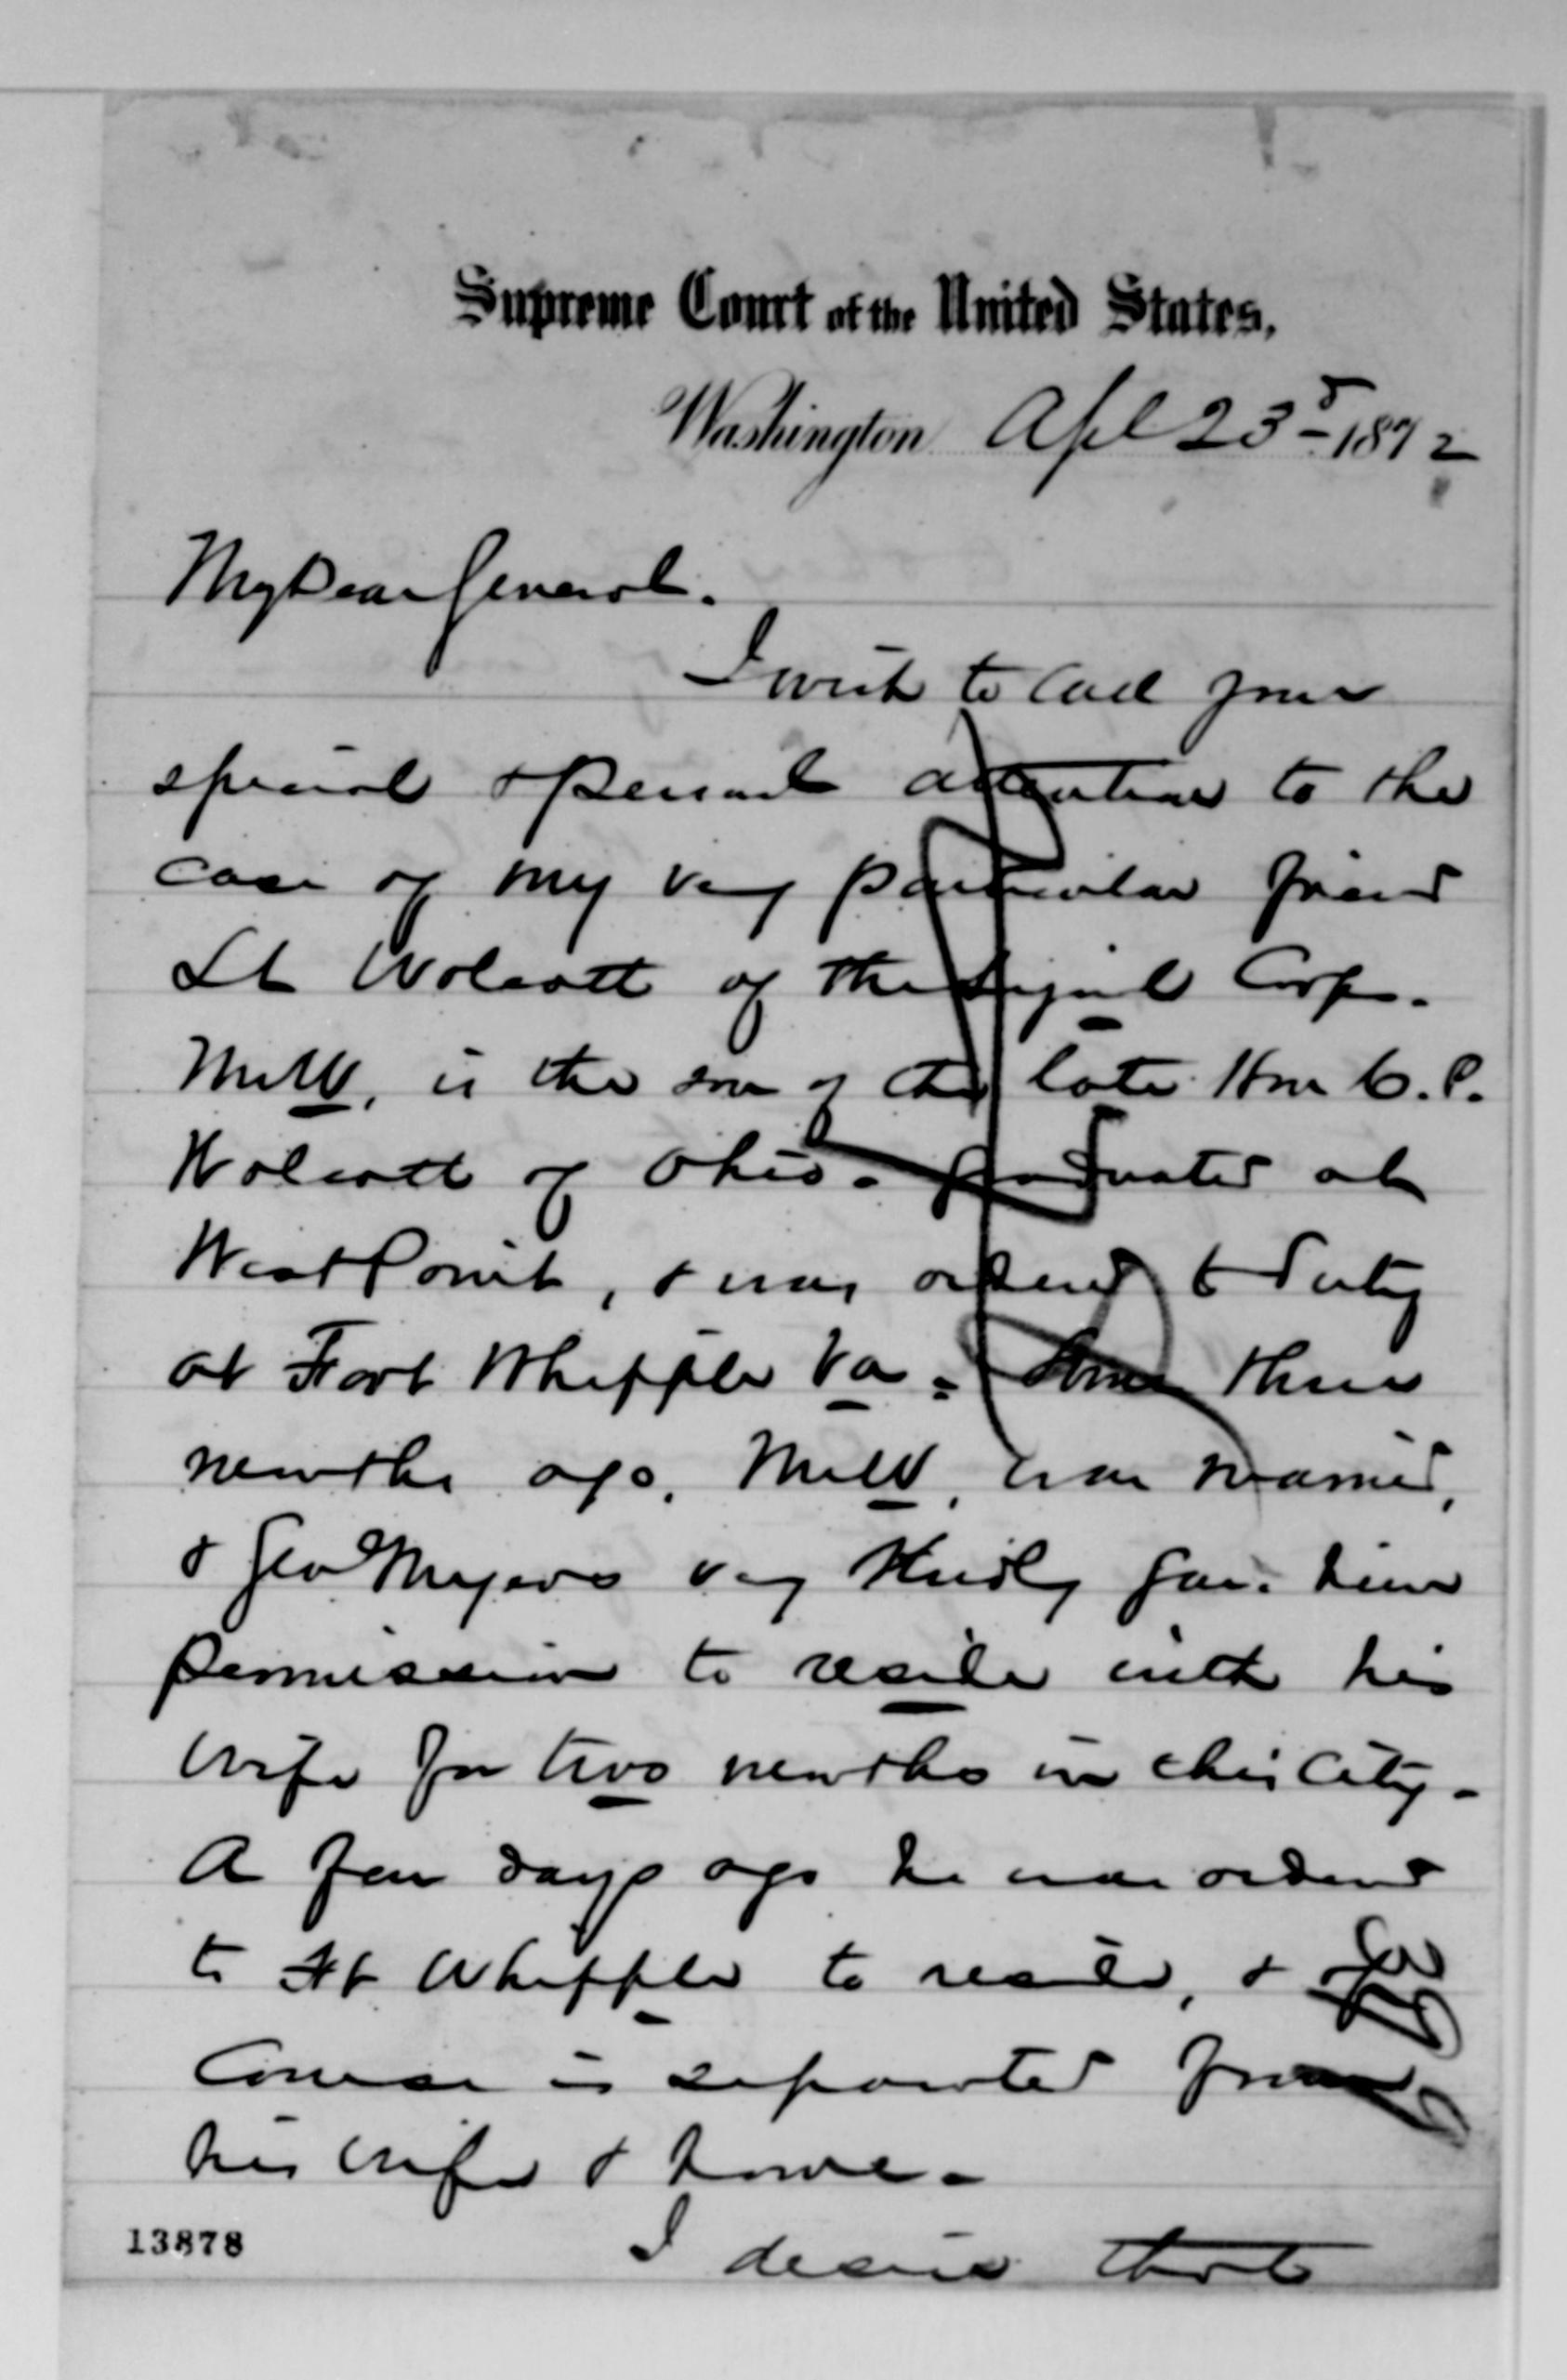 Supreme Court of the United States,
Washington Apl 23d 1872
My Dear General.
I wish to call your
special & personal attention to the
case of my very particular friend
Lt Wolcott of the Signal Corps.
Mr W, is the son of the late Hon C. P.
Wolcott of Ohio - graduated at
West Point, & was ordered to duty
at Fort Whipple Va - Some three
months ago, Mr W, was married,
& Genl Myers very kindly gave him
permission to reside with his
wife for two months in this city -
A few days ago he was ordered
to Ft Whipple to reside, & of
course is separated from
his wife & home -
13878
I desire that